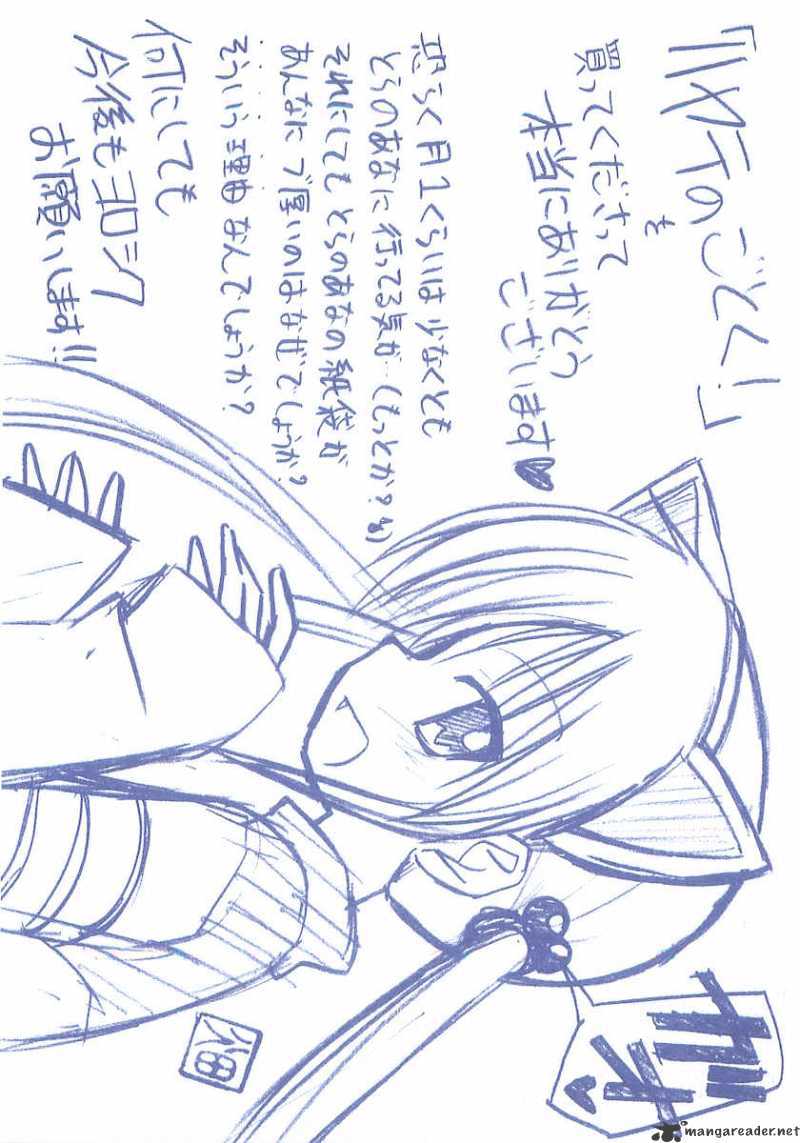 「ハヤテのごとく!」
を
買ってくださって
本当にありがとう
ございます♥
恐らく月1くらいは少なくとも
とらのあなに行ってる気が(もっとか?
それにしてもとらのあなの紙袋が
あんなにブ厚いのはなぜでしょうか?
そういう理由なんでしょうか?
何にしても
今後もヨロシク
お願いします!!
mangareader.net